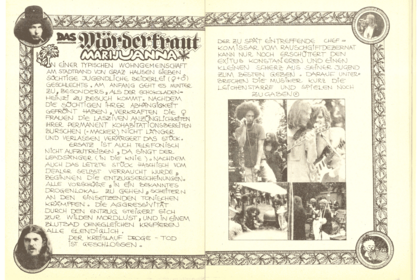 DAS Mörderkraut
MARIJUANNA
IN EINER TYPISCHEN WOHNGEMEINSCHAFT
AM STADTRAND VON GRAZ HAUSEN SIEBEN
SÜCHTIGE JUGENDLICHE BEIDERLEI
GESCHLECHTS. AM ANFANG GEHT ES MATTER
ZU, BESONDERS, ALS DER SCHOKOLADEN-
HEINZI ZU BESUCH KOMMT. NACHDEM
DIE SÜCHTIGEN IHRER ABHÄNGIGKEIT
GEFRÖNT HABEN, VERLASSEN DIE
FRAUEN DIE LASZIVEN ANZÜGLICHKEITEN
IHRER PERMANENT
BURSCHEN NICHT LÄNGER
UND VERLASSEN VERÄRGERT DAS
ERSATZ IST AUCH TELEFONISCH
NICHT AUFZUTREIBEN, DA SINGT DER
IN DIE KNIE. NACHDEM
AUCH DAS LETZTE STÜCK HASCHISCH VOM
DEALER SELBST VERRAUCHT WURDE,
BEGINNEN DIE ENTZUGSERSCHEINUNGEN.
ALLE VORSCHLÄGE, IN EIN BEKANNTES
DROGENLOKAL ZU GEHEN, SCHEITERN
AN DEN EINSETZENDEN TONISCHEN
KRÄMPFEN. DIE AGGRESSIVITÄT
DURCH DEN ENTZUG STEIGERT SICH
ZUR WILDEN MORDLUST UND IN EINEM
BLUTBAD
ALLE ELENDIGLICH.
DER KREISLAUF DROGE - TOD
IST GESCHLOSSEN.
DER ZU SPÄT EINTREFFENDE CHEF-
KOMMISSAR VOM RAUSCHGIFTDEZERNAT
KANN NUR NOCH ERSCHÜTTERT DEN
EXITUS KONSTATIEREN UND EINEN
KLEINEN SCHERZ AUS SEINER JUGEND
ZUM BESTEN GEBEN. DARAUF UNTER-
BRECHEN DIE MUSIKER KURZ DIE
LEICHENSTARRE UND SPIELEN NOCH